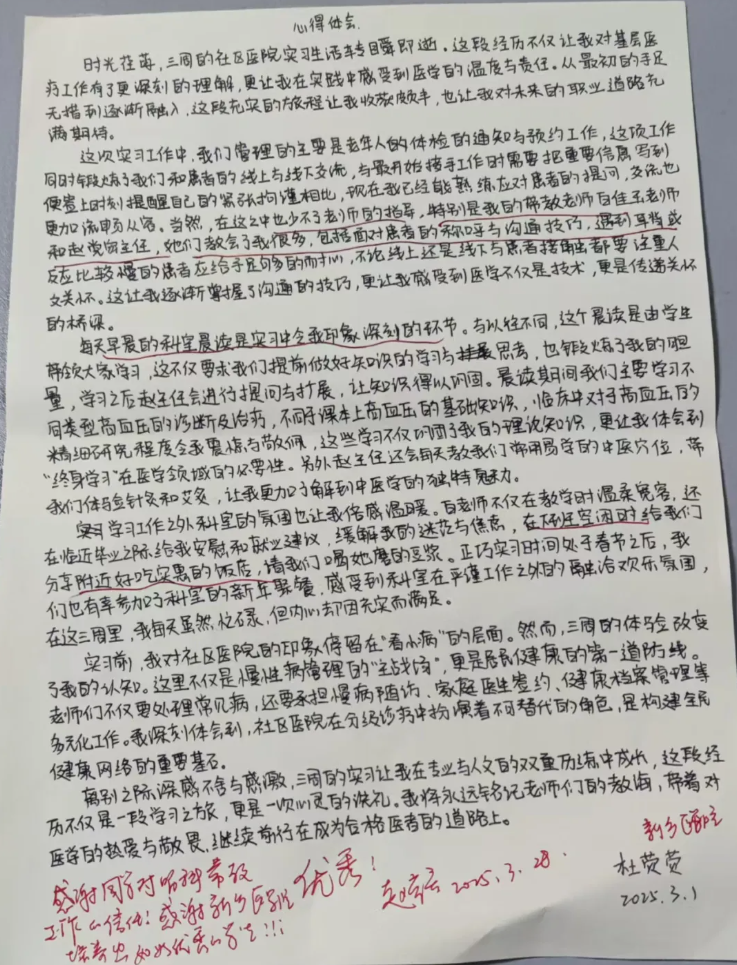 心得体会
时光荏苒，三周的社区医院实习生活转目瞬即逝。这段经历不仅让我对基层医
疗工作有了更深刻的理解，更让我在实践中感受到医学的温度与责任。从最初的手足
无措到逐渐融入，这段充实的旅程让我收获颇丰，也让我对未来的职业道路充
满期待。
这次实习工作中，我们管理的主要是老年人的体检的通知与预约工作，这项工作
同时锻炼了我们和患者的线上与线下交流，与最开始接手工作时需要把重要信属写到
便签上时刻提醒自己的紧张拘谨相比，现在我已经能熟练应对患者的提问，交流也
更加流畅从容。当然，在这之中也少不了老师的指导，特别是我的带教老师白佳玉老师
和赵党宏主任，她们教会了我很多，包括面对患者的称呼与沟通技巧，遇到耳背或
反应比较慢的患者应给予足够多的耐心，不论线上还是线下与患者接触都要注重人
文关怀。这让我逐渐掌握了沟通的技巧，更让我感受到医学不仅是技术，更是传递关怀
的桥梁。
每天早晨的科室晨读是实习中令我印象深刻的环节。与以往不同，这个晨读是由学生
带领大家学习，这不仅要求我们提前做好知识的学习与思考，也锻炼了我的胆
量，学习之后赵主任会进行提问与扩展，让知识得以巩固。晨读期间我们主要学习不
同类型高血压的诊断及治疗，不同于课本上高血压的基础知识，临床中对于高血压的
精细研究程度令我震惊与敬佩，这些学习不仅巩固了我的理论知识，更让我体会到
“终身学习”在医学领域的必要性。另外赵主任还会每天教我们常用易学的中医穴位，带
我们体验针灸和艾灸，让我更加了解到中医学的独特魅力。
学习工作之外科室的氛围也让我倍感温暖。白老师不仅在教学时温柔宽容，还
在临近毕业之际给我安慰和就业建议，缓解我的迷茫与焦虑，在忙碌空闲时给我们
分享附近好吃实惠的饭店，请我们喝她磨的豆浆。正巧实习时间处于春节之后，我
们也有幸参加了科室的新年聚餐，感受到科室在严谨工作之外的融洽欢乐氛围，
在这三周里，我每天虽然忙碌，但内心却因充实而满足。
实习前，我对社区医院的印象停留在“看小病”的层面。然而，三周的体验改变
了我的认知。这里不仅是慢性病管理的“主战场”，更是居民健康的第一道防线。
老师们不仅要处理常见病，还要承担慢病随访、家庭医生签约、健康档案管理等
多元化工作。我深刻体会到，社区医院在分级诊疗中扮演着不可替代的角色，是构建全民
健康网络的重要基石。
离别之际深感不舍与感激，三周的实习让我在专业与人文的双重历练中成长，这段经
历不仅是一段学习之旅，更是一次心灵的洗礼。我将永远铭记老师们的教诲，带着对
医学的热爱与敬畏，继续前行在成为合格医者的道路上。
新乡医学院
感谢同学对咱科带教
优秀！
2025.3.28.
杜荧荧
工作的信任！感谢新乡医学院
2025.3.1
培养出如此优秀的学生！！！